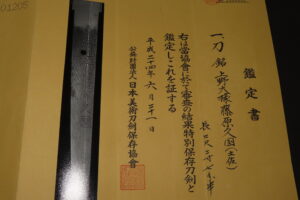 鑑定書
一、刀 銘 上野大掾藤原久国(土佐)
長 二尺三寸七分半
右は當協會に於て審査の結果特別保存刀剣と
鑑定しこれを証する
平成二十四年六月二十一日
公益財団法人 日本美術刀剣保存協會
01205